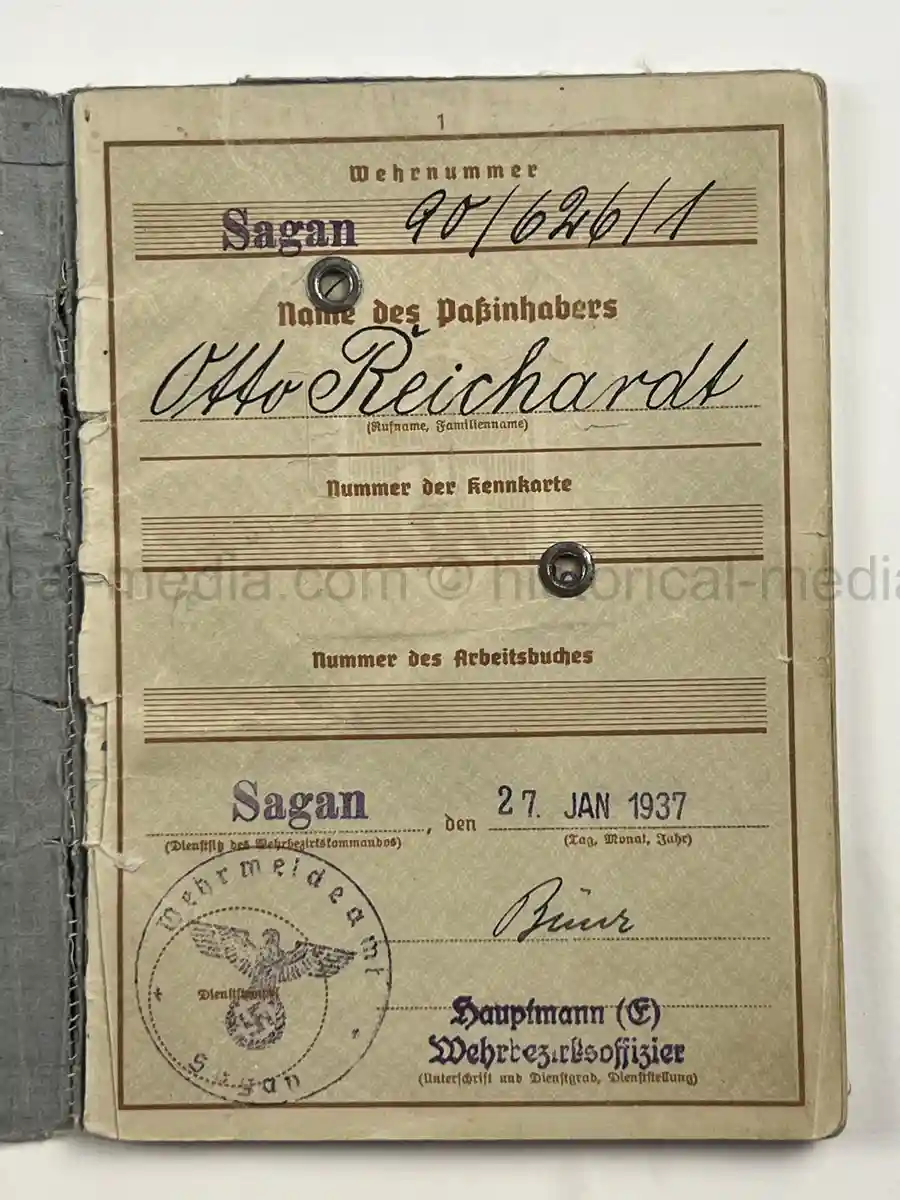 1
Wehrnummer
Sagan 90/626/1
Name des Paßinhabers
Otto Reichardt
(Rufname, Familienname)
Nummer der Kennkarte
cal-media.com © historical-media
Nummer des Arbeitsbuches
Sagan, den 27. JAN 1937
(Dienstsitz des Wehrbezirkskommandos) (Tag, Monat, Jahr)
Wehrmeldeamt
Dienststempel
Sagan
Hauptmann (E)
Wehrbezirksoffizier
(Unterschrift und Dienstgrad, Dienststellung)